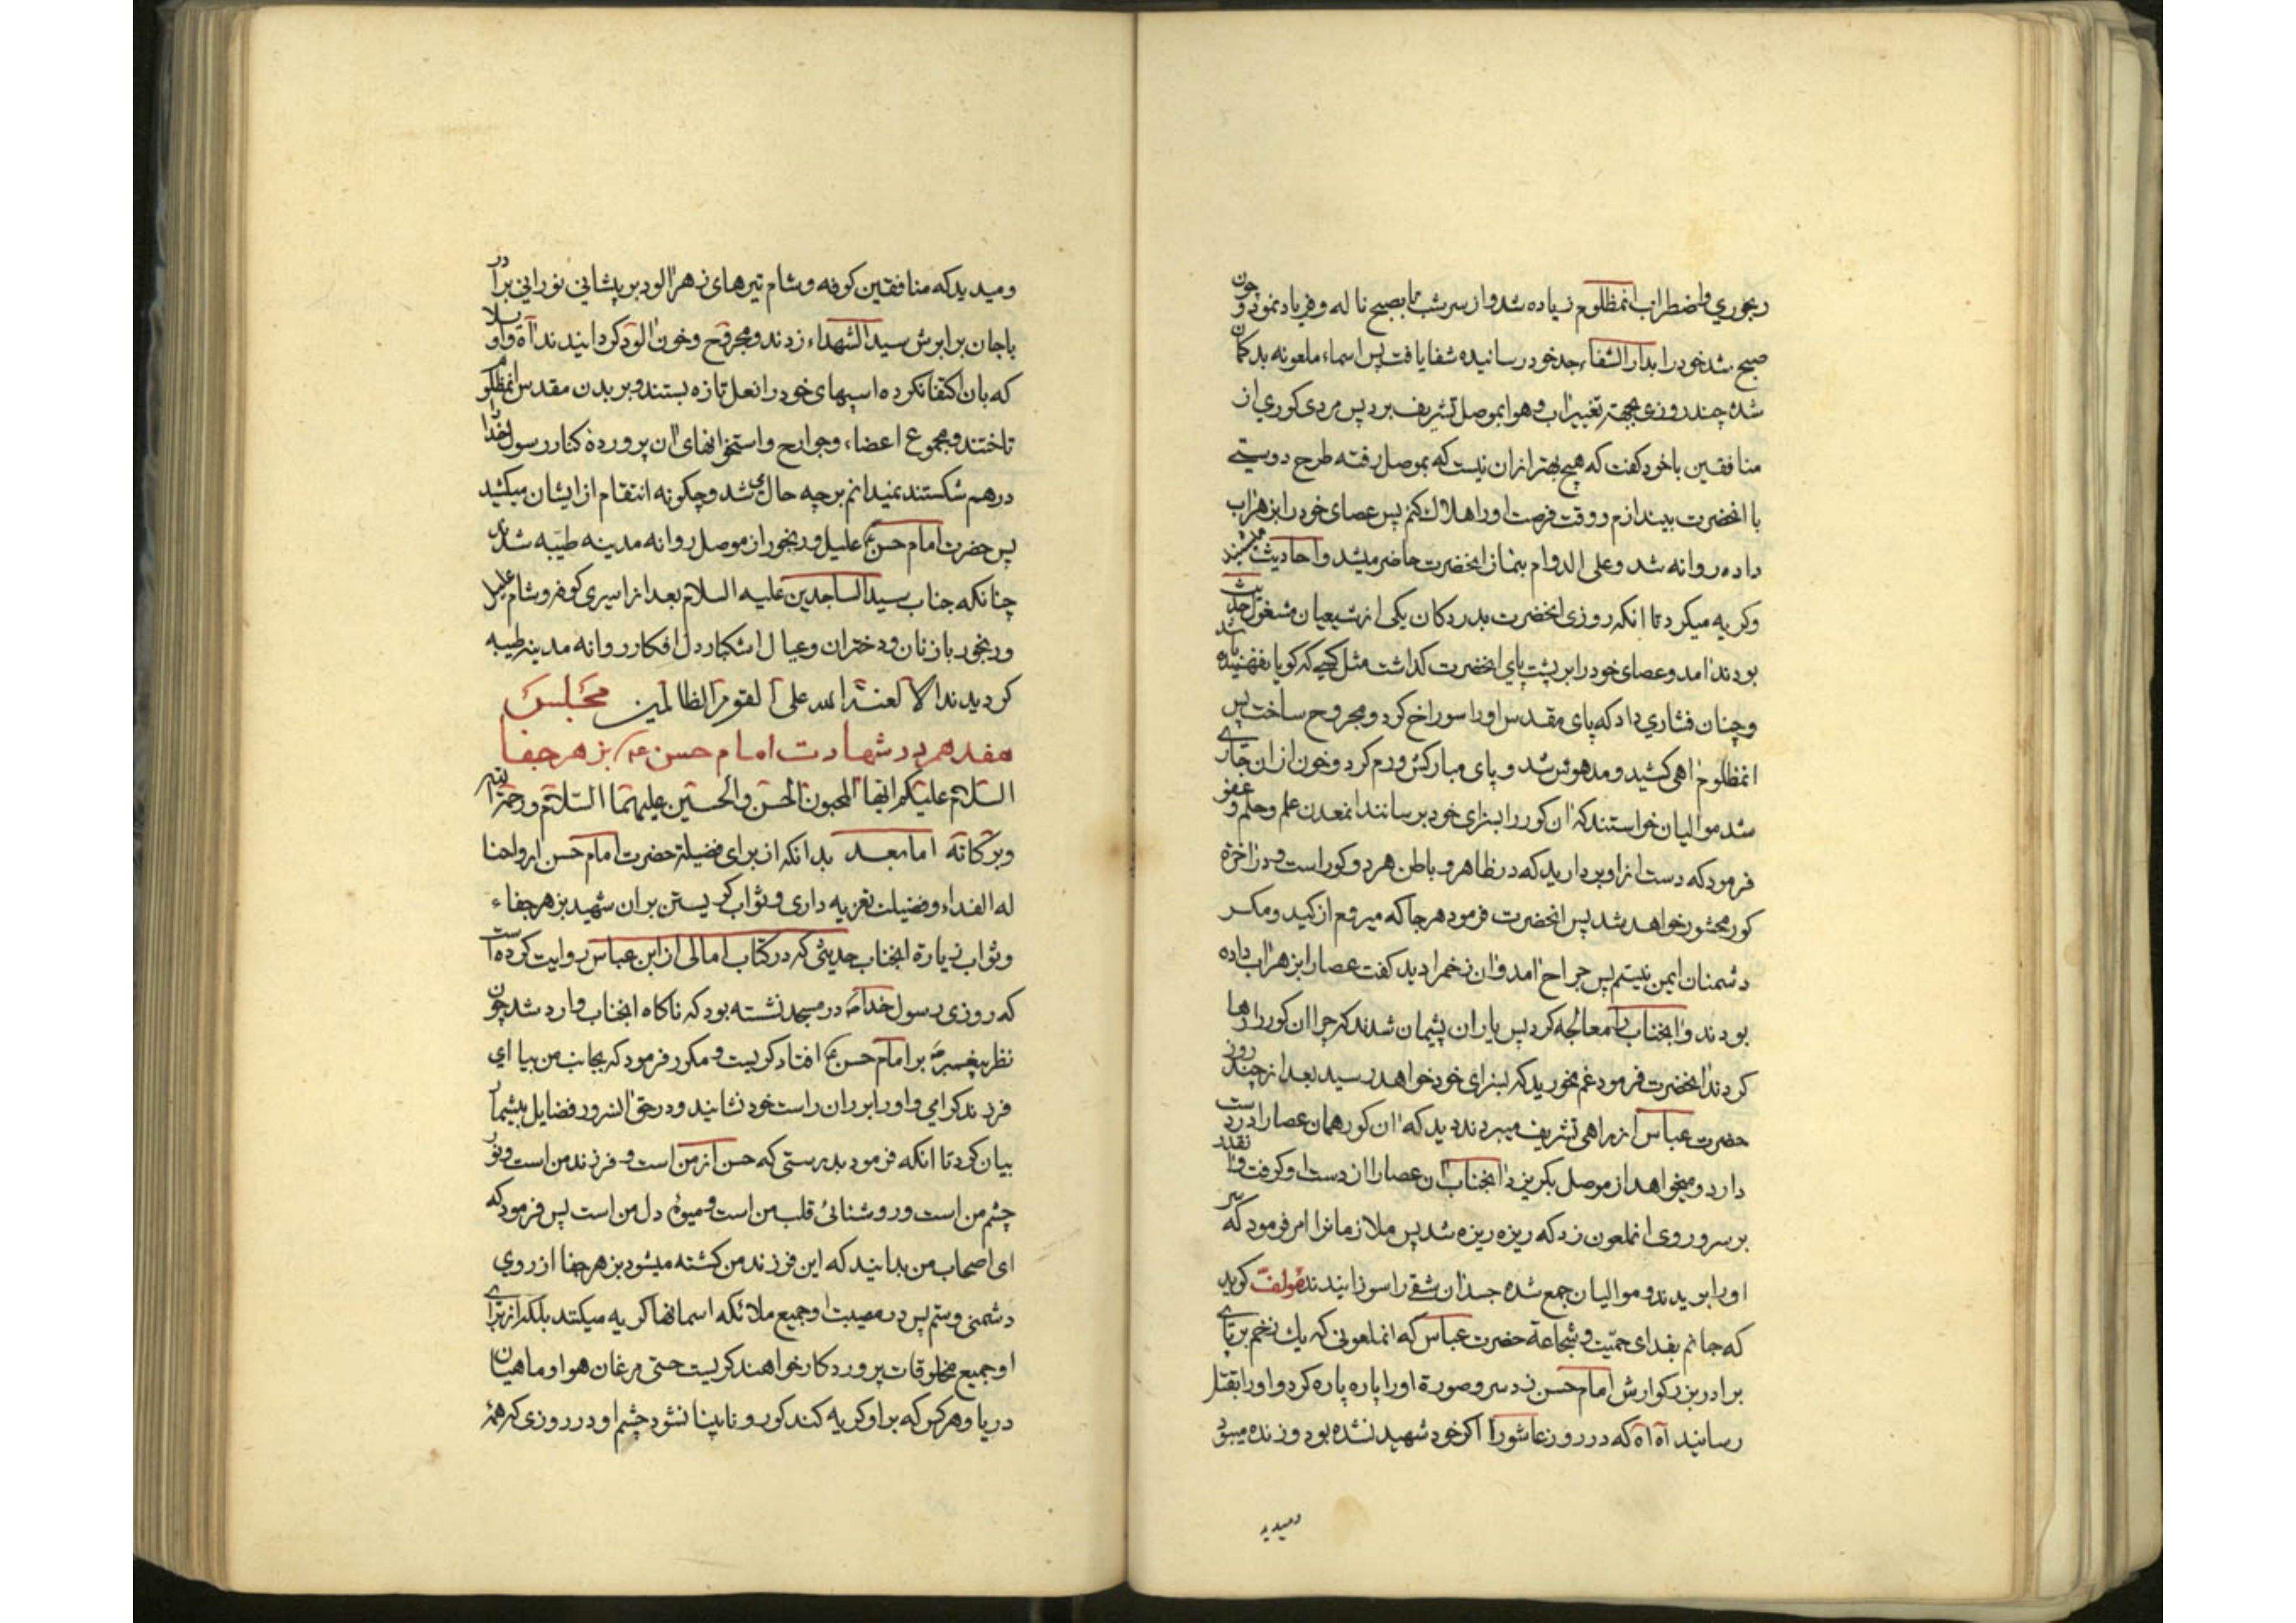 رنجوري واضطراب انمظلوم زیاده شد و از سر شب تا بصبح ناله و فریاد نمود و چون
صبح شد خود را بدار الشفاء جد خود رسانیده شفا یافت پس اسماء ملعونه بدکمان
شده چند روزی بجهة تغییر اب و هوا بموصل تشریف برد پس مردی کوري از
منافقین با خود کفت که هیچ بهتر ازان نیست که بموصل رفته طرح دوستے
با انحضرت بیندازم و وقت فرصت او را هلاک کنم پس عصای خود را بزهراب
داده روانه شد و علی الدوام بنماز انحضرت حاضر میشد و احادیث میشنید
و کریه میکرد تا انکه روزی انحضرت بدر دکان یکی از شیعیان مشغول حدیث
بودند امد و عصای خود را بر پشت پای انحضرت کذاشت مثل کسی که کویا نفهمیده باشد
و چنان فشاري داد که پای مقدس او را سوراخ کرد و مجروح ساخت پس
انمظلوم اهی کشید و مدهوش شد و پای مبارکش ورم کرد و خون ازان جاری
شد موالیان خواستند که ان کور را بسزای خود برسانند انمعدن علم و حلم و عفو
فرمود که دست از او بردارید که در ظاهر و باطن هر دو کور است و در اخرة
کور محشور خواهد شد پس انحضرت فرمود هر جا که میروم از کید و مکر
دشمنان ایمن نیستم پس جراح امد و ان زخم را دید کفت عصا را بزهراب داده
بودند و انجناب را معالجه کرد پس یاران پشیمان شدند که چرا ان کور را رها
کردند انحضرت فرمود غم نخورید که بسزای خود خواهد رسید بعد از چند روز
حضرت عباس از راهی تشریف میبردند دید که ان کور همان عصا را در دست
دارد و میخواهد از موصل بکریزد انجناب ان عصا را از دست او کرفت و انقدر
بر سر و روی انملعون زد که ریزه ریزه شد پس ملازمانرا امر فرمود که سر
او را بریدند و موالیان جمع شده جسد ان شقے را سوزانیدند مولف کوید
که جانم بفدای حمیّت و شجاعة حضرت عباس که انملعونی که یك زخم بر پای
برادر بزرکوارش امام حسن زد سر و صورة او را پاره پاره کرد و او را بقتل
رسانید آه آه که در روز عاشورا اکر خود شهید نشده بود و زنده میبود
ومیدید
ومیدید که منافقین کوفه و شام تیرهای زهر الود بر پیشانی نورانی برادر
با جان برابرش سید الشهداء زدند و مجروح و خون الود کردانیدند آه و واویلا
که بان اکتفا نکرده اسبهای خود را نعل تازه بستند و بر بدن مقدس انمظلوم
تاختند و مجموع اعضاء و جوارح و استخوانهای ان پرورده کنار رسول خدا را
درهم شکستند نمیدانم بر چه حال می شد و چکونه انتقام از ایشان میکشید
پس حضرت امام حسن ع علیل و رنجور از موصل روانه مدینه طیبه شدند
چنانکه جناب سید الساجدین علیه السلام بعد از اسیری کوفه و شام علیل
و رنجور با زنان و دختران و عیال اشکبار دل افکار روانه مدینه طیبه
کردیدند الا لعنة الله علی القوم الظالمین مجلس
هفدهم در شهادت امام حسن ع بزهر جفا
السلام علیکم ایها المحبون الحسن والحسین علیهما السلام ورحمة الله
وبرکاته اما بعد بدانکه از برای فضیلة حضرت امام حسن ارواحنا
له الفداء و فضیلت تعزیه داری و ثواب کریستن بر ان شهید بزهر جفاء
و ثواب زیارة انجناب حدیثی که در کتاب امالی از ابن عباس روایت کرده است
که روزی رسول خدا ص در مسجد نشسته بود که ناکاه انجناب وارد شد چون
نظر پیغمبر ص بر امام حسن ع افتاد کریست و مکرر فرمود که بجانب من بیا ای
فرزند کرامي و او را بر ران راست خود نشانید و در حق انسرور فضایل بیشمار
بیان کرد تا انکه فرمود بدرستی که حسن از من است و فرزند من است و نور
چشم من است و روشنائی قلب من است و میوۀ دل من است پس فرمود که
ای اصحاب من بدانید که این فرزند من کشته میشود بزهر جفا از روي
دشمنی و ستم پس در مصیبت او جمیع ملائکه اسمانها کریه میکنند بلکه از برای
او جمیع مخلوقات پروردکار خواهند کریست حتی مرغان هوا و ماهیان
دریا و هر کس که بر او کریه کند کور و نابینا نشود چشم او در روزی که همۀ